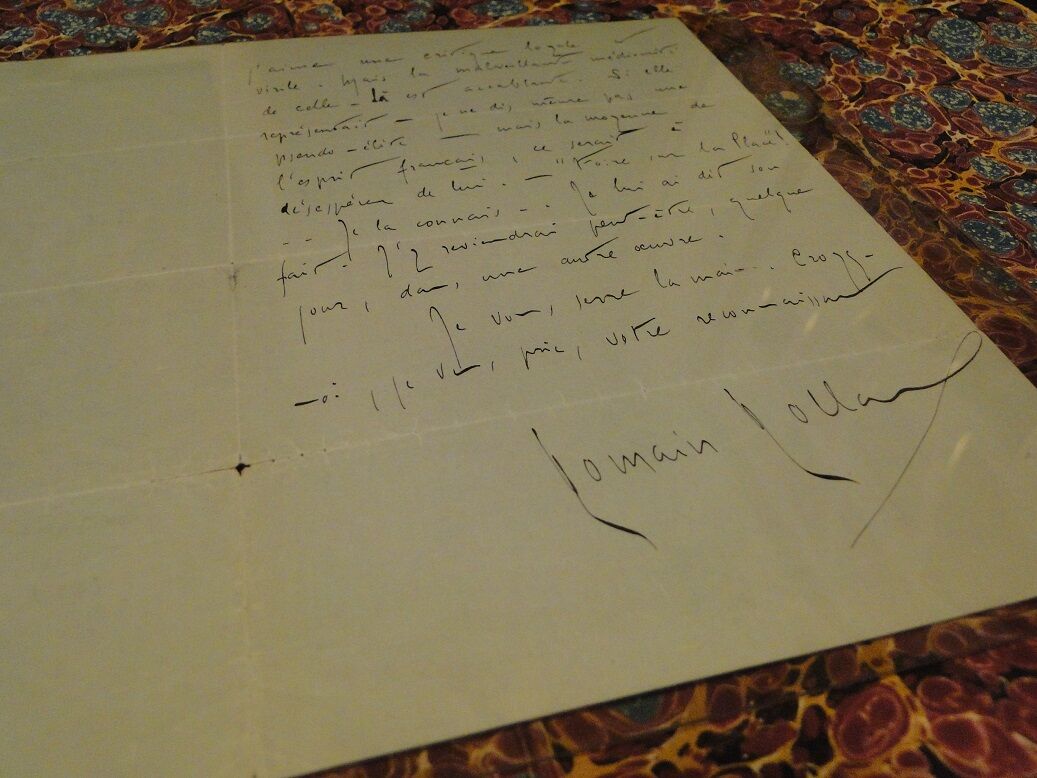 j'aime une critique loyale et
virile. Mais la malveillante médiocrité
de celle-là est accablante. Si elle
représentait — je ne dis même pas une
pseudo-élite — mais la moyenne de
l'esprit français, ce serait à
désespérer de lui. — "Foire sur la Place"
.. Je la connais — . Je lui ai dit son
fait. J'y reviendrai peut-être, quelque
jour, dans une autre œuvre.
Je vous serre la main. Croyez-
moi, je vous prie, votre reconnaissant
Romain Rolland